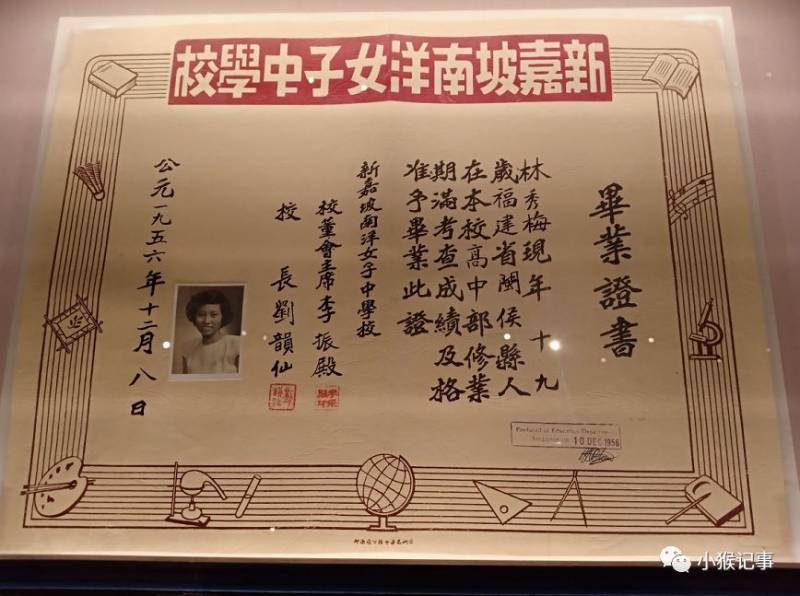 新嘉坡南洋女子中學校
畢業證書
林秀梅現年十九
歲福建省閩侯縣人
在本校高中部修業
期滿考查成績及格
准予畢業此證
新嘉坡南洋女子中學校
校董會主席李振殿
校長劉韻仙
公元一九五六年十二月八日
10 DEC 1956
小猴记事